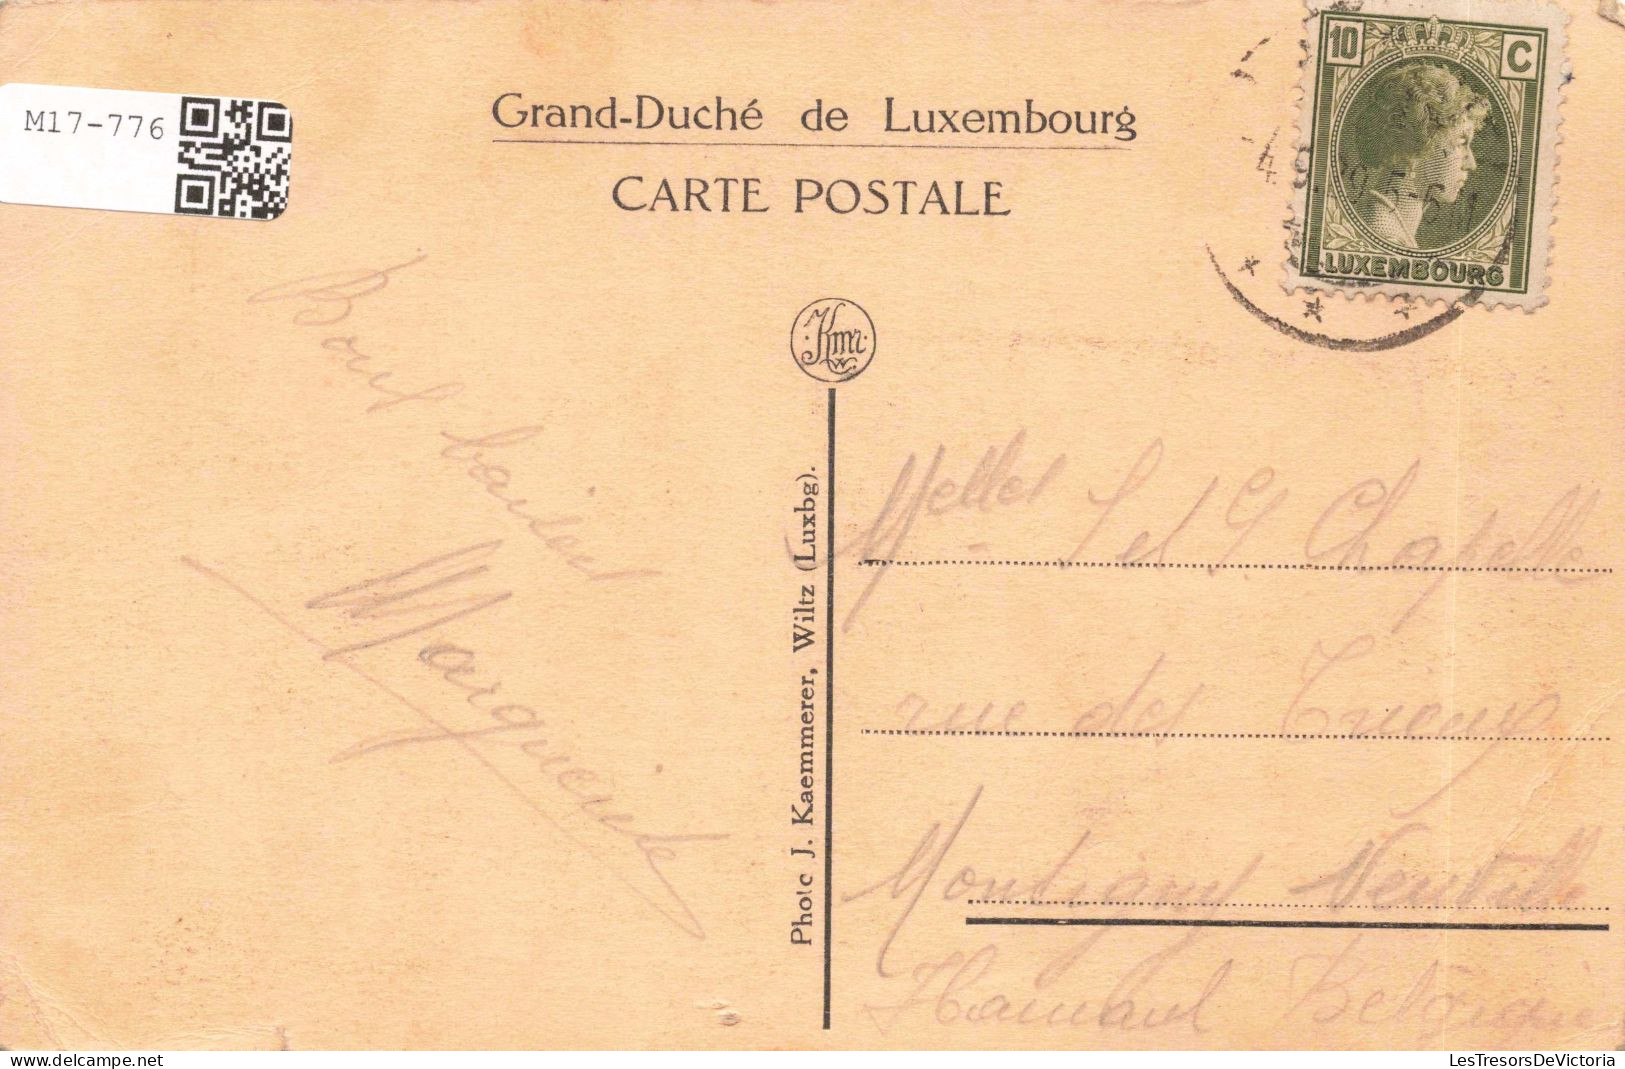 M17-776
Grand-Duché de Luxembourg
CARTE POSTALE
10 C
LUXEMBOURG
Kmr
W.
Bons baisers
Marguerite
Photo J. Kaemmerer, Wiltz (Luxbg).
Melles et G Chapelle
rue des Trieux
Montigny Neuville
Hainaut Belgique
LesTresorsDeVictoria